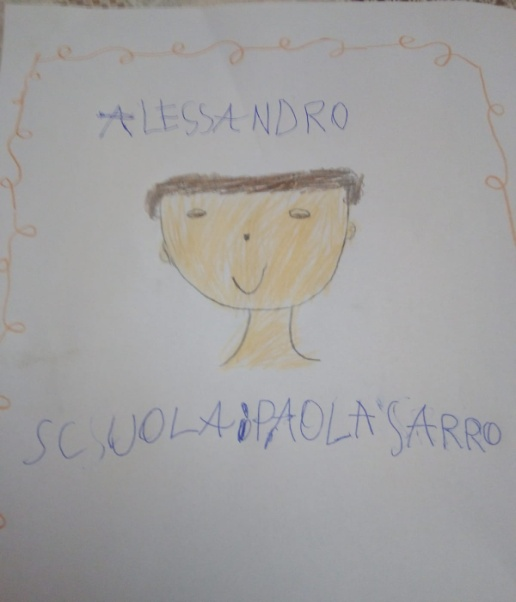 ALESSANDRO
SCUOLA:PAOLA SARRO